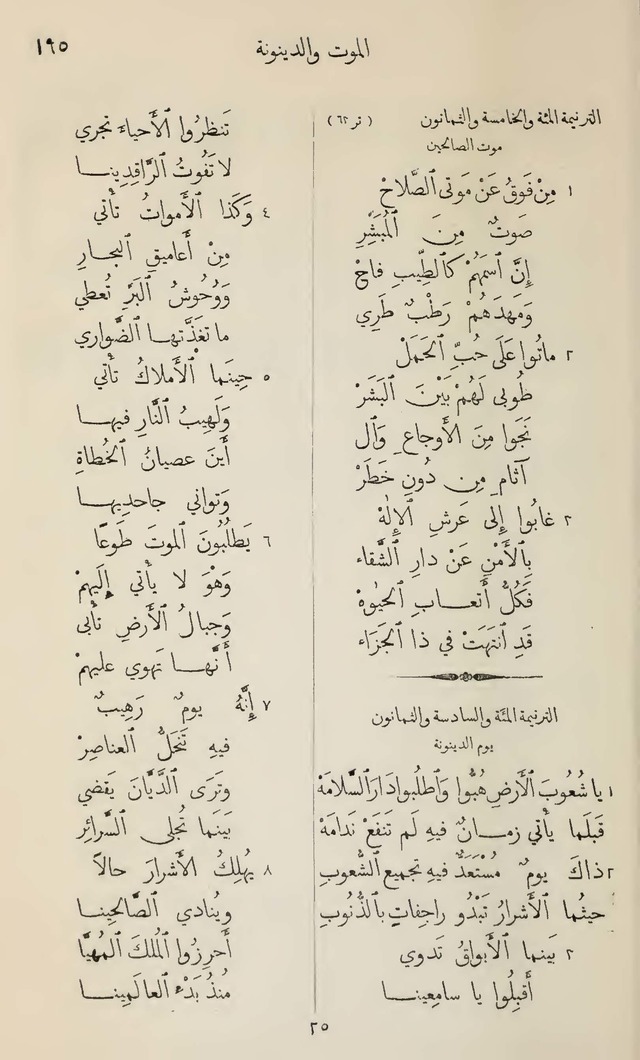 الموت والدينونة
١٩٥
الترنيمة المئة والخامسة والثمانون
( تر ٦٢ )
موت الصالحين
١ مِنْ فَوقُ عَنْ مَوتَى ٱلصَّلَاحْ
صَوتٌ مِنَ ٱلْمُبَشِّرِ
إِنَّ ٱسْمَهُمْ كَٱلطِّيبِ فاحْ
وَمَهدَهُمْ رَطْبٌ طَرِي
٢ ماتُوا عَلَى حُبِّ ٱلْحَمَلْ
طُوبى لَهُمْ بَيْنَ ٱلبَشَرْ
نَجَوا مِنَ ٱلأَوجاعِ وَٱل
آثامِ مِن دُونِ خَطَرْ
٣ غابُوا إِلى عَرشِ ٱلإِلٰهْ
بِٱلأَمْنِ عَنْ دارِ ٱلشَّقاء
فَكُلُّ أَتعابِ ٱلحَيٰوةْ
قَدِ ٱنتهَتْ في ذا ٱلجَزَاء
الترنيمة المئة والسادسة والثمانون
يوم الدينونة
١ يا شُعُوبَ ٱلأَرضِ هُبُّوا وَٱطلُبوا دَارَ ٱلسَّلامَهْ
قَبلَما يأْتي زمانٌ فيهِ لَم تَنفَعْ نَدامَهْ
٢ ذاكَ يومٌ مُسْتَعَدٌّ فيهِ تجميع ٱلشُّعوبِ
حيثُما ٱلأَشرارُ تَبْدُو راجفاتٍ بٱلذُّنُوبِ
٣ بَينما ٱلأَبواقُ تَدوي
أَقبِلُوا يا سامعينا
تَنظرُوا ٱلأَحياء تجري
لا تَفُوتُ ٱلرَّاقِدِينا
٤ وَكَذا ٱلأَمواتُ تأْتي
مِنْ أَعاميقِ ٱلبحارِ
وَوُحوشُ ٱلبَرِّ تُعطي
ما تغَذَّتها ٱلضَّواري
٥ حِينَما ٱلأَملاكُ تأْتي
وَلَهيبُ ٱلنَّارِ فيها
أَينَ عصيانُ ٱلخُطاةِ
وَتواني جاحديها
٦ يَطلُبُونَ ٱلموتَ طَوعًا
وَهْوَ لا يأْتي إِلَيهِمْ
وَجبالُ ٱلأَرضِ تأْبى
أَنَّها تَهوي عليهمْ
٧ إِنَّهُ يومٌ رَهِيبٌ
فيهِ تَنحَلُّ ٱلعناصِرْ
وَتَرَى ٱلدَّيَّانَ يَقضي
بَينَما تُجلى ٱلسَّرائِرْ
٨ يُهلِكُ ٱلأَشرارَ حالاً
ويُنادي ٱلصَّالحِينا
أَحرِزُوا ٱلمُلكَ ٱلمُهيَّا
مُنذُ بَدْءِ ٱلعالَمِينا
٢٥